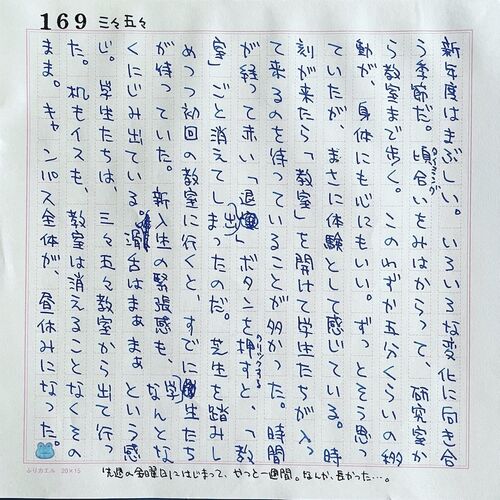 169 三々五々
新年度はまぶしい。いろいろな変化に向き合
う季節だ。頃合いをみはからって、研究室か
ら教室まで歩く。このわずか五分くらいの移
動が、身体にも心にもいい。ずっとそう思っ
ていたが、まさに体験として感じている。時
刻が来たら「教室」を開けて学生たちが入っ
て来るのを待っていることが多かった。時間
が経って赤い「退出」ボタンを押すと、「教
クリックする
室」ごと消えてしまったのだ。芝生を踏みし
めつつ初回の教室に行くと、すでに学生たち
が待っていた。新入生の緊張感も、なんとな
くにじみ出ている。滑舌はまぁまぁという感
じ。学生たちは、三々五々教室から出て行っ
た。机もイスも、教室は消えることなくその
まま。キャンパス全体が、昼休みになった。
ふりカエル 20×15
先週の金曜日にはじまって、やっと一週間。なんか、長かった…。